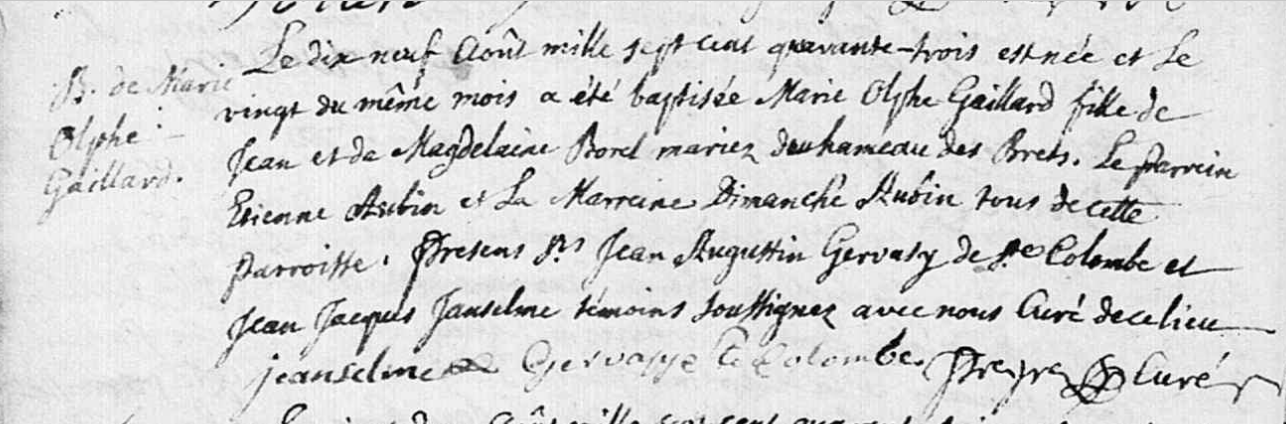 B. de Marie
Olphe
Gaillard.
Le dix neuf Août mille sept cent quarante-trois est née et Le
vingt du même mois a été baptisée Marie Olphe Gaillard fille de
Jean et de Magdelaine Borel mariez du hameau des Brets. Le parrein
Etienne Aubin et La Marreine Dimanche Aubin tous de cette
parroisse. Presens Srs Jean Augustin Gervasy de Ste Colombe et
Jean Jacques Janselme témoins soussignez avec nous Curé de ce lieu
jeanselme Gervasy Colombe. Curé